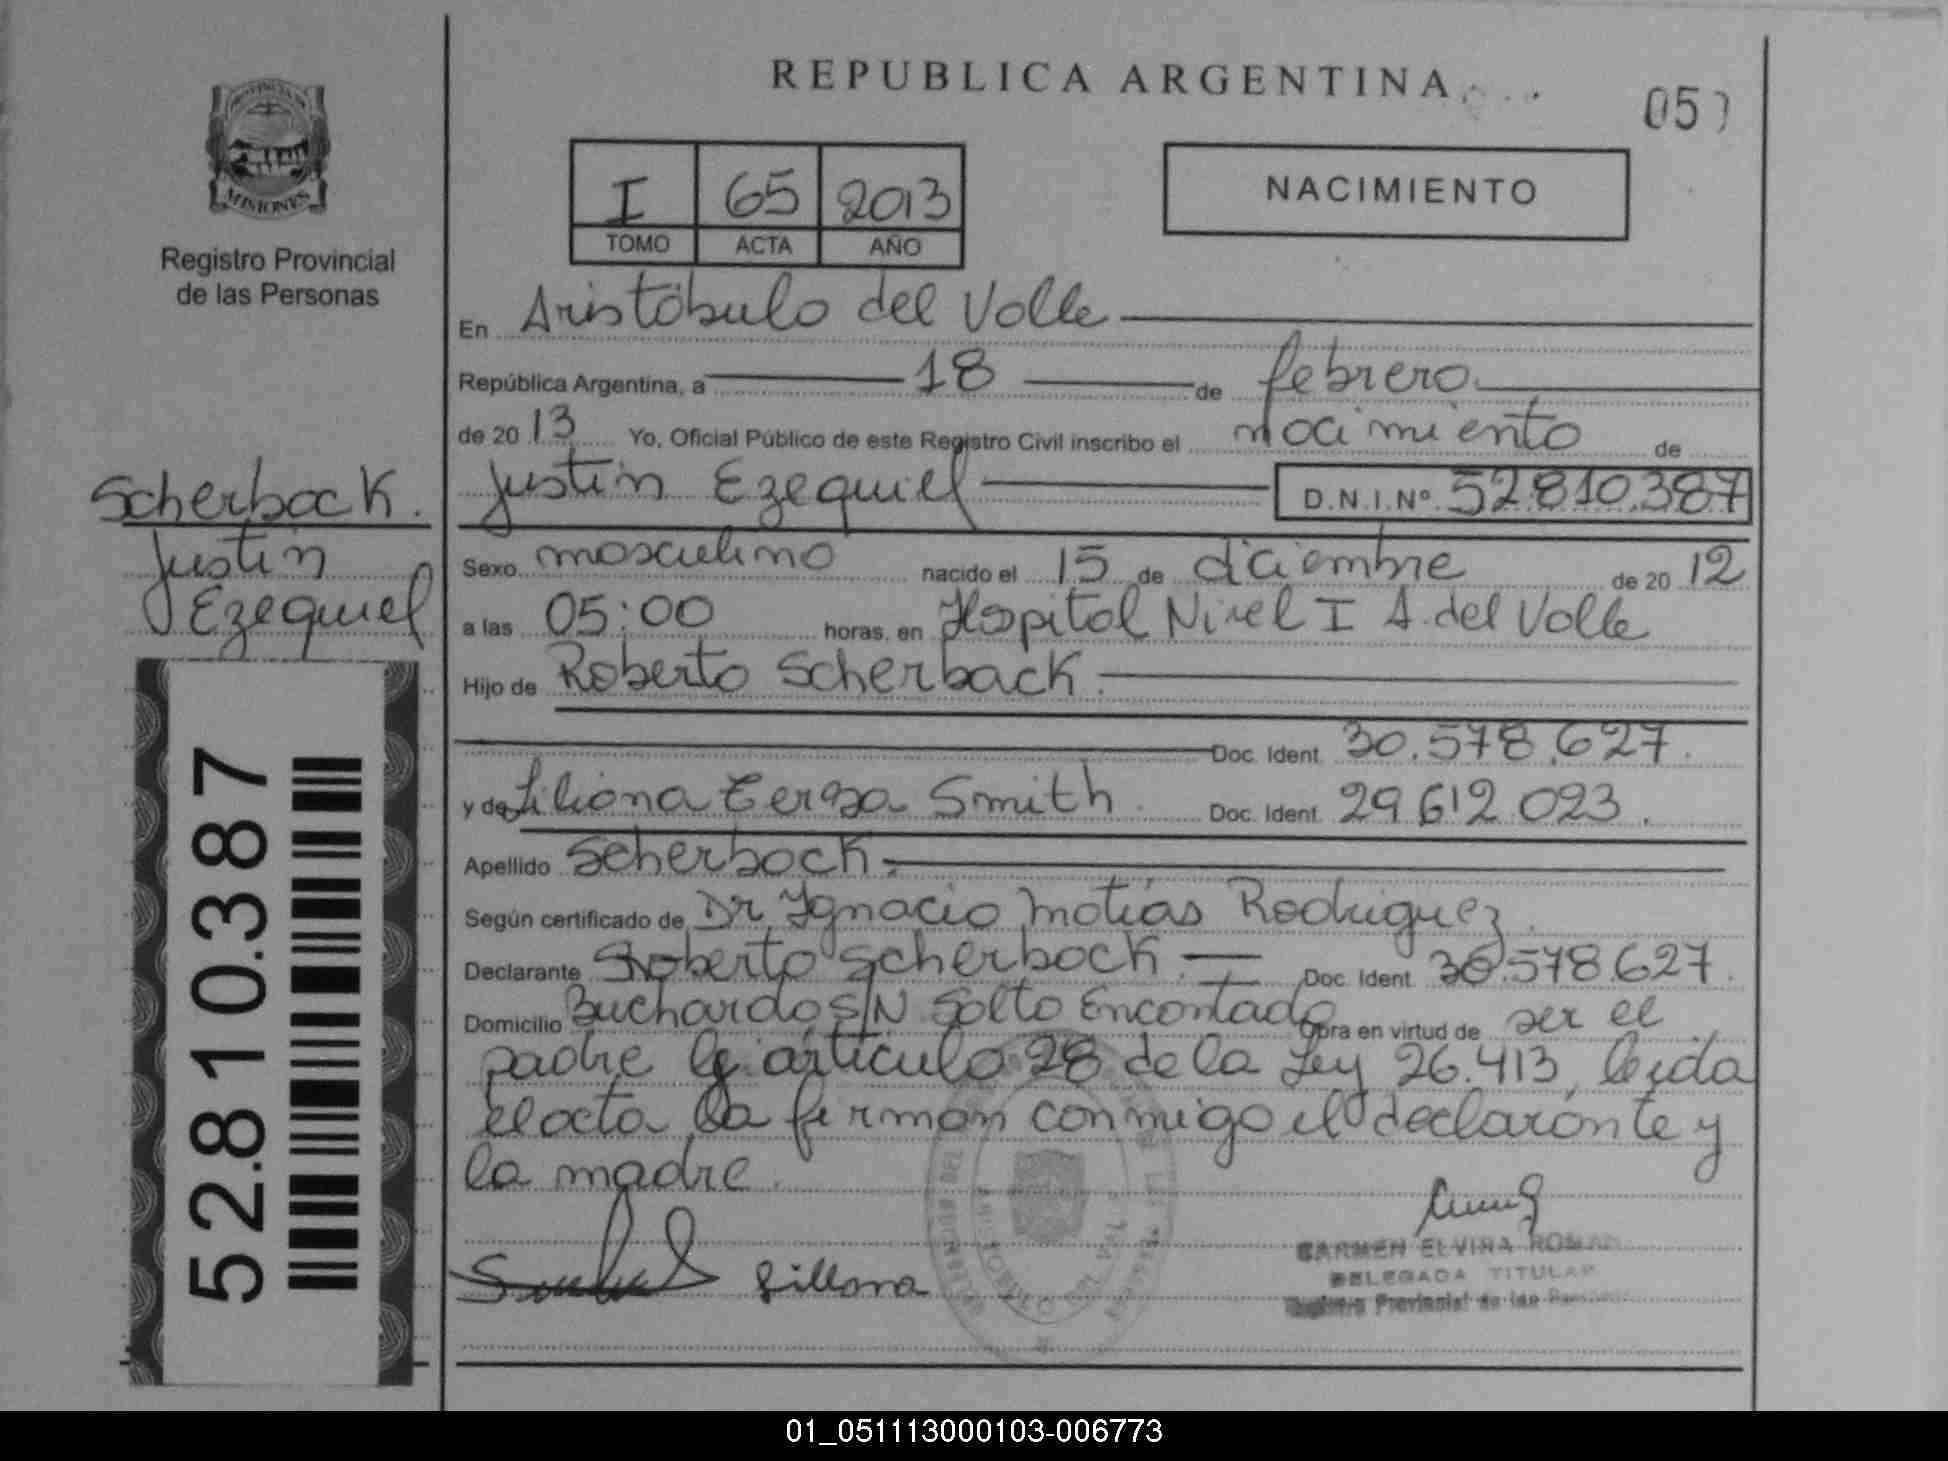 REPUBLICA ARGENTINA
05
PROVINCIA DE
MISIONES
Registro Provincial
de las Personas
I 65 2013
TOMO ACTA AÑO
NACIMIENTO
En Aristóbulo del Valle
República Argentina, a 18 de febrero
de 20 13 Yo, Oficial Público de este Registro Civil inscribo el nacimiento de
Justin Ezequiel D.N.I.Nº 52.810.387
Scherback.
Justin
Ezequiel
52.810.387
Sexo masculino nacido el 15 de diciembre de 20 12
a las 05:00 horas, en Hospital Nivel I A. del Valle
Hijo de Roberto Scherback.
Doc. Ident. 30.578.627.
y de Liliana Teresa Smith Doc. Ident. 29.612.023.
Apellido Scherback.
Según certificado de Dr. Ignacio Matías Rodriguez.
Declarante Roberto Scherback. Doc. Ident. 30.578.627.
Domicilio Buchardo S/N Salto Encantado Obra en virtud de ser el
padre artículo 28 de la Ley 26.413, leida
el acta, la firman conmigo el declarante y
la madre.
CARMEN ELVIRA ROMAN
DELEGADA TITULAR
Registro Provincial de las Personas
01_051113000103-006773